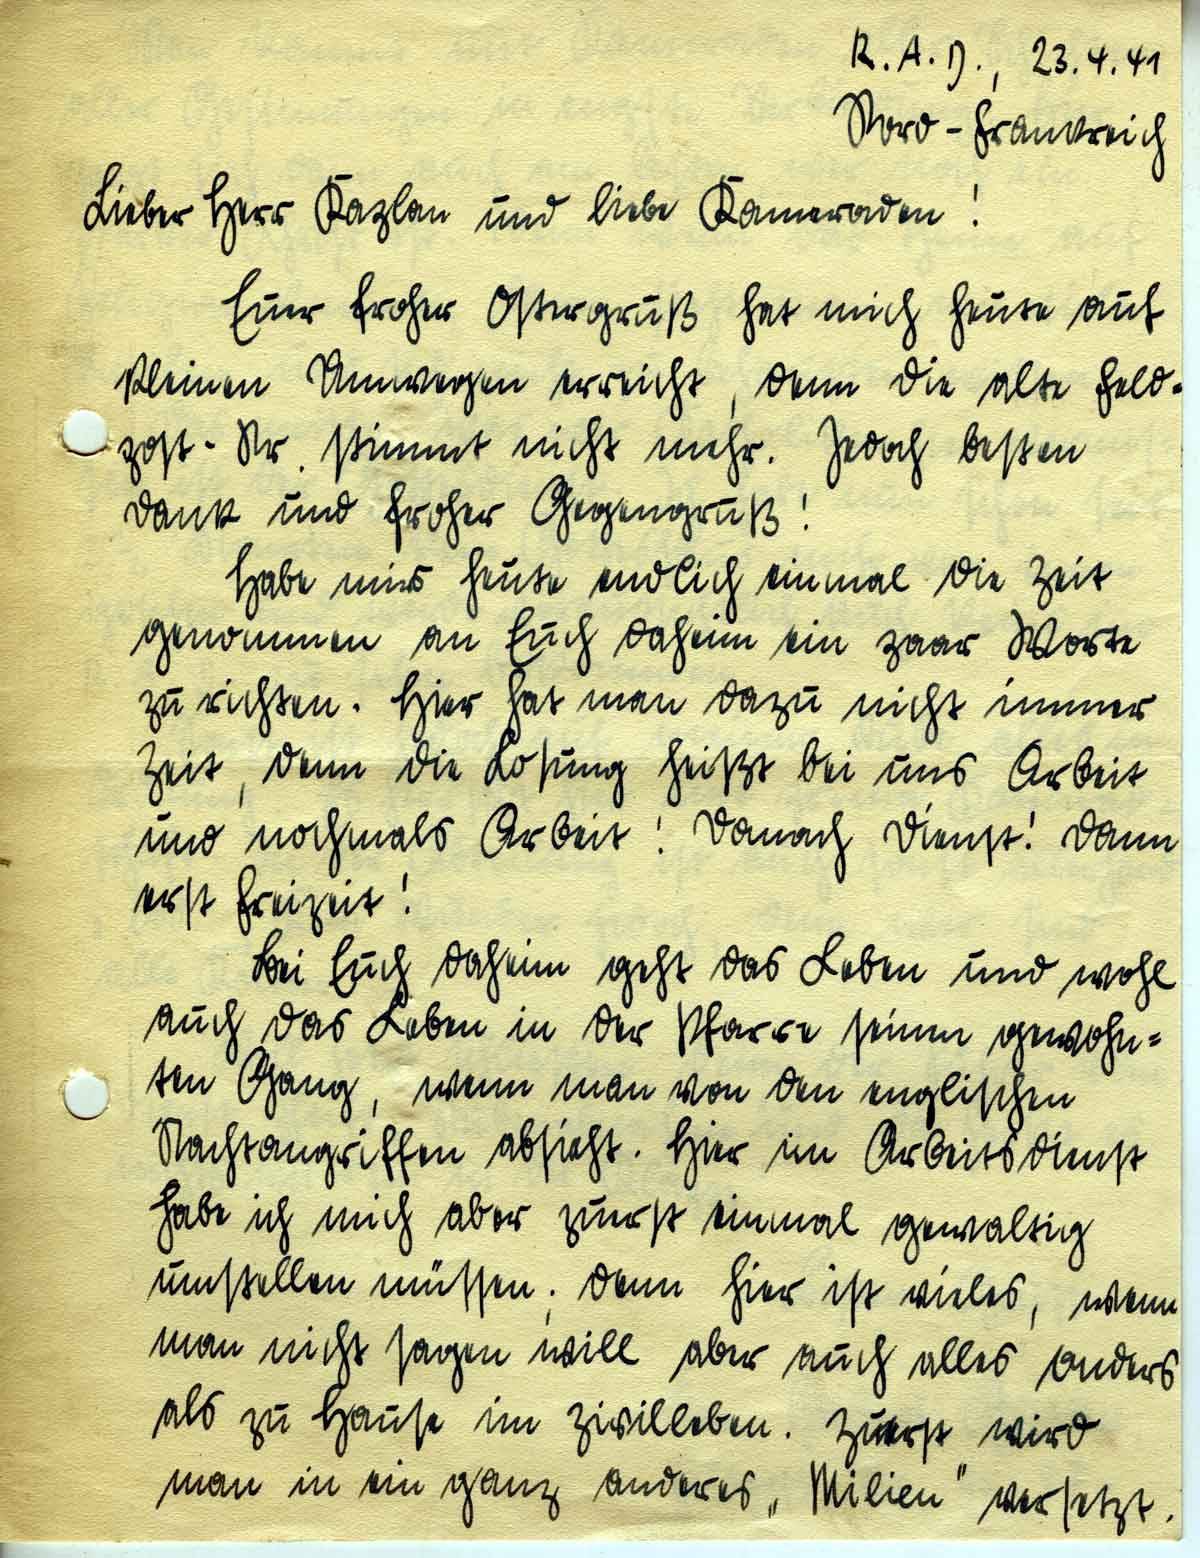 R.A.D., 23.4.41
Nord-Frankreich
Lieber Herr Kaplan und liebe Kameraden!
Euer froher Ostergruß hat mich heute auf
kleinen Umwegen erreicht, denn die alte Feld-
post-Nr. stimmt nicht mehr. Jedoch besten
Dank und froher Gegengruß!
Habe mir heute endlich einmal die Zeit
genommen an Euch daheim ein paar Worte
zu richten. Hier hat man dazu nicht immer
Zeit, denn die Losung heißt bei uns Arbeit
und nochmals Arbeit! Danach Dienst! Dann
erst Freizeit!
Bei Euch daheim geht das Leben und wohl
auch das Leben in der Pfarre seinen gewohn=
ten Gang, wenn man von den englischen
Nachtangriffen absieht. Hier im Arbeitsdienst
habe ich mich aber zuerst einmal gewaltig
umstellen müssen; denn hier ist vieles, wenn
man nicht sagen will aber auch alles anders
als zu Hause im Zivilleben. Zuerst wird
man in ein ganz anderes „Milieu" versetzt.